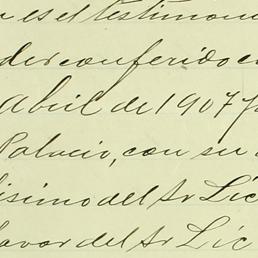 es el testimonio
der conferido en
abril de 1907 y
Palacio, con su
isimo del Sr Lic
favor del Sr Lic